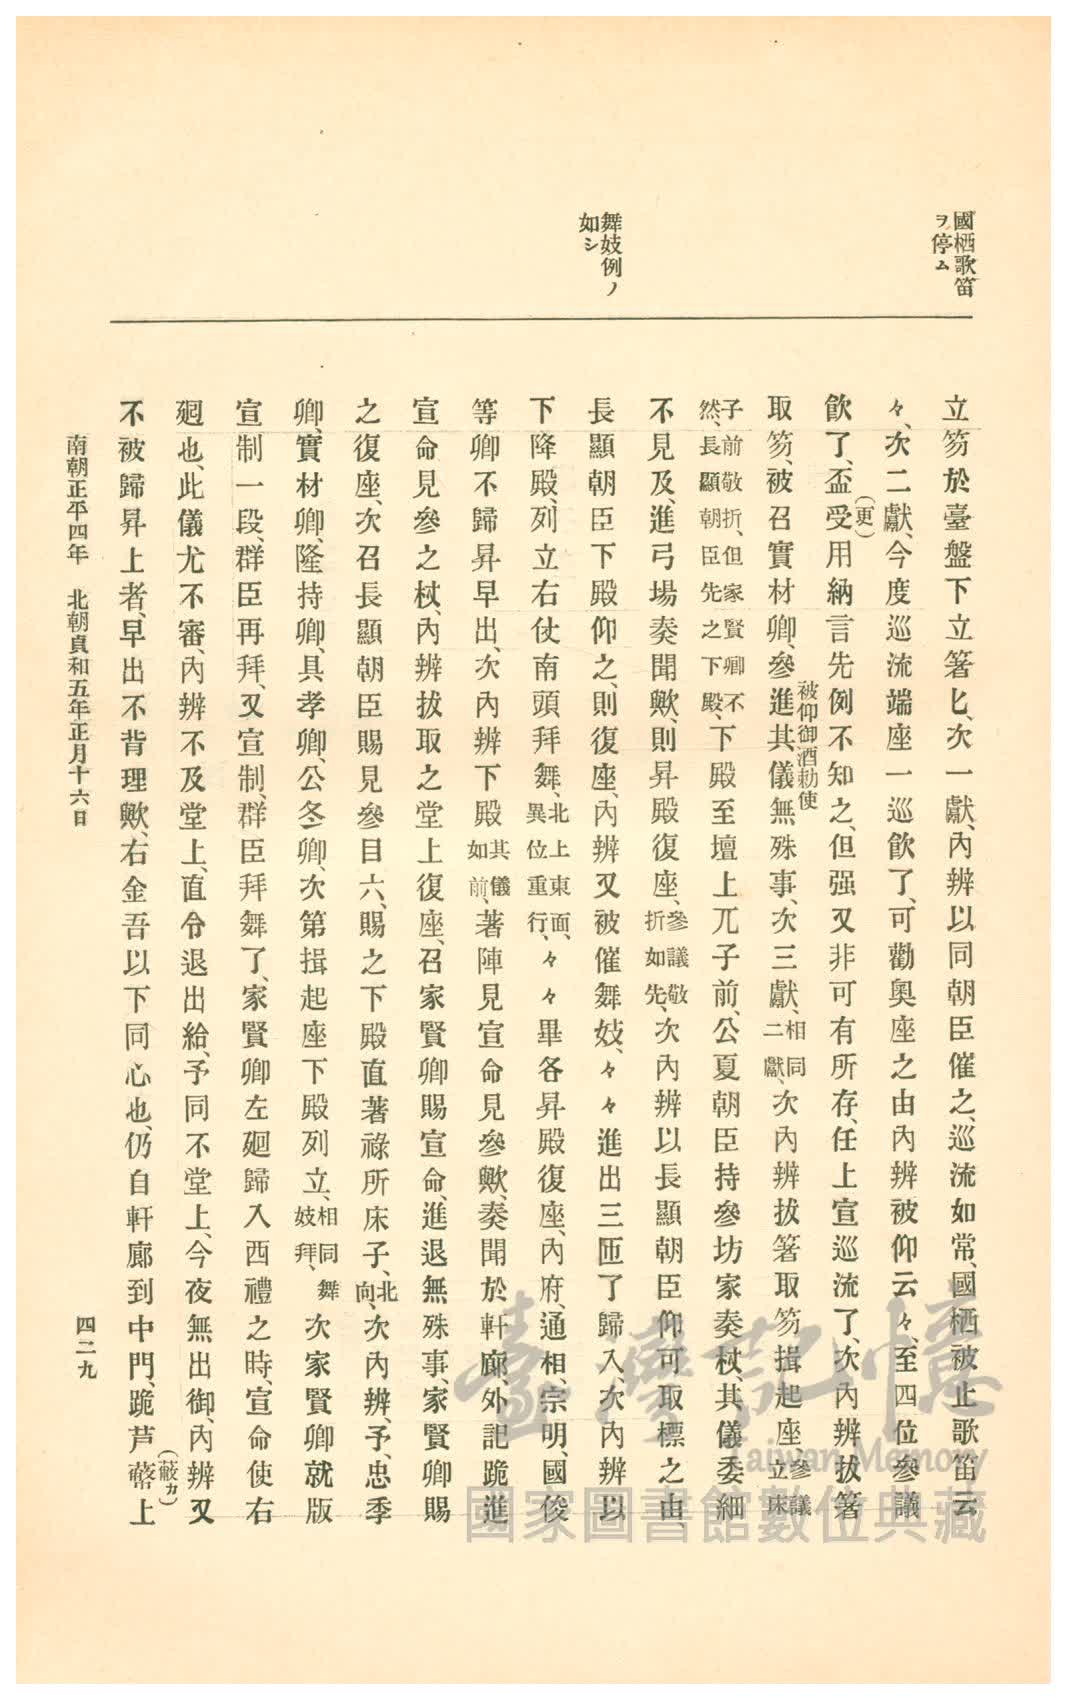 國栖歌笛
ヲ停ム
舞妓例ノ
如シ
立笏於臺盤下立箸匕、次一獻、內辨以同朝臣催之、巡流如常、國栖被止歌笛云
々、次二獻、今度巡流端座一巡飮了、可勸奧座之由內辨被仰云々、至四位參議
飮了、盃受(更)用納言先例不知之、但强又非可有所存、任上宣巡流了、次內辨拔箸
取笏、被召實材卿、參進其儀無殊事、被仰御酒勅使次三獻、相同二獻、次內辨拔箸取笏揖起座、參議立床
子前敬折、但家賢卿不然、長顯朝臣先之下殿、下殿至壇上兀子前、公夏朝臣持參坊家奏杖、其儀委細
不見及、進弓場奏聞歟、則昇殿復座、參議敬折如先、次內辨以長顯朝臣仰可取標之由、
長顯朝臣下殿仰之、則復座、內辨又被催舞妓、々々進出三匝了歸入、次內辨以
下降殿、列立右仗南頭拜舞、北上東面、異位重行、々々畢各昇殿復座、內府、通相、宗明、國俊
等卿不歸昇早出、次內辨下殿其儀如前、著陣見宣命見參歟、奏聞於軒廊、外記跪進
宣命見參之杖、內辨拔取之堂上復座、召家賢卿賜宣命、進退無殊事、家賢卿賜
之復座、次召長顯朝臣賜見參目六、賜之下殿直著祿所床子、北向、次內辨、予、忠季
卿、實材卿、隆持卿、具孝卿、公冬卿、次第揖起座下殿列立、相同舞妓拜、次家賢卿就版
宣制一段、群臣再拜、又宣制、群臣拜舞了、家賢卿左廻歸入西禮之時、宣命使右
廻也、此儀尤不審、內辨不及堂上、直令退出給、予同不堂上、今夜無出御、內辨又
不被歸昇上者、早出不背理歟、右金吾以下同心也、仍自軒廊到中門、跪芦蔽(蔽カ)上
南朝正平四年　北朝貞和五年正月十六日
四二九
臺灣記憶
Taiwan Memory
國家圖書館數位典藏